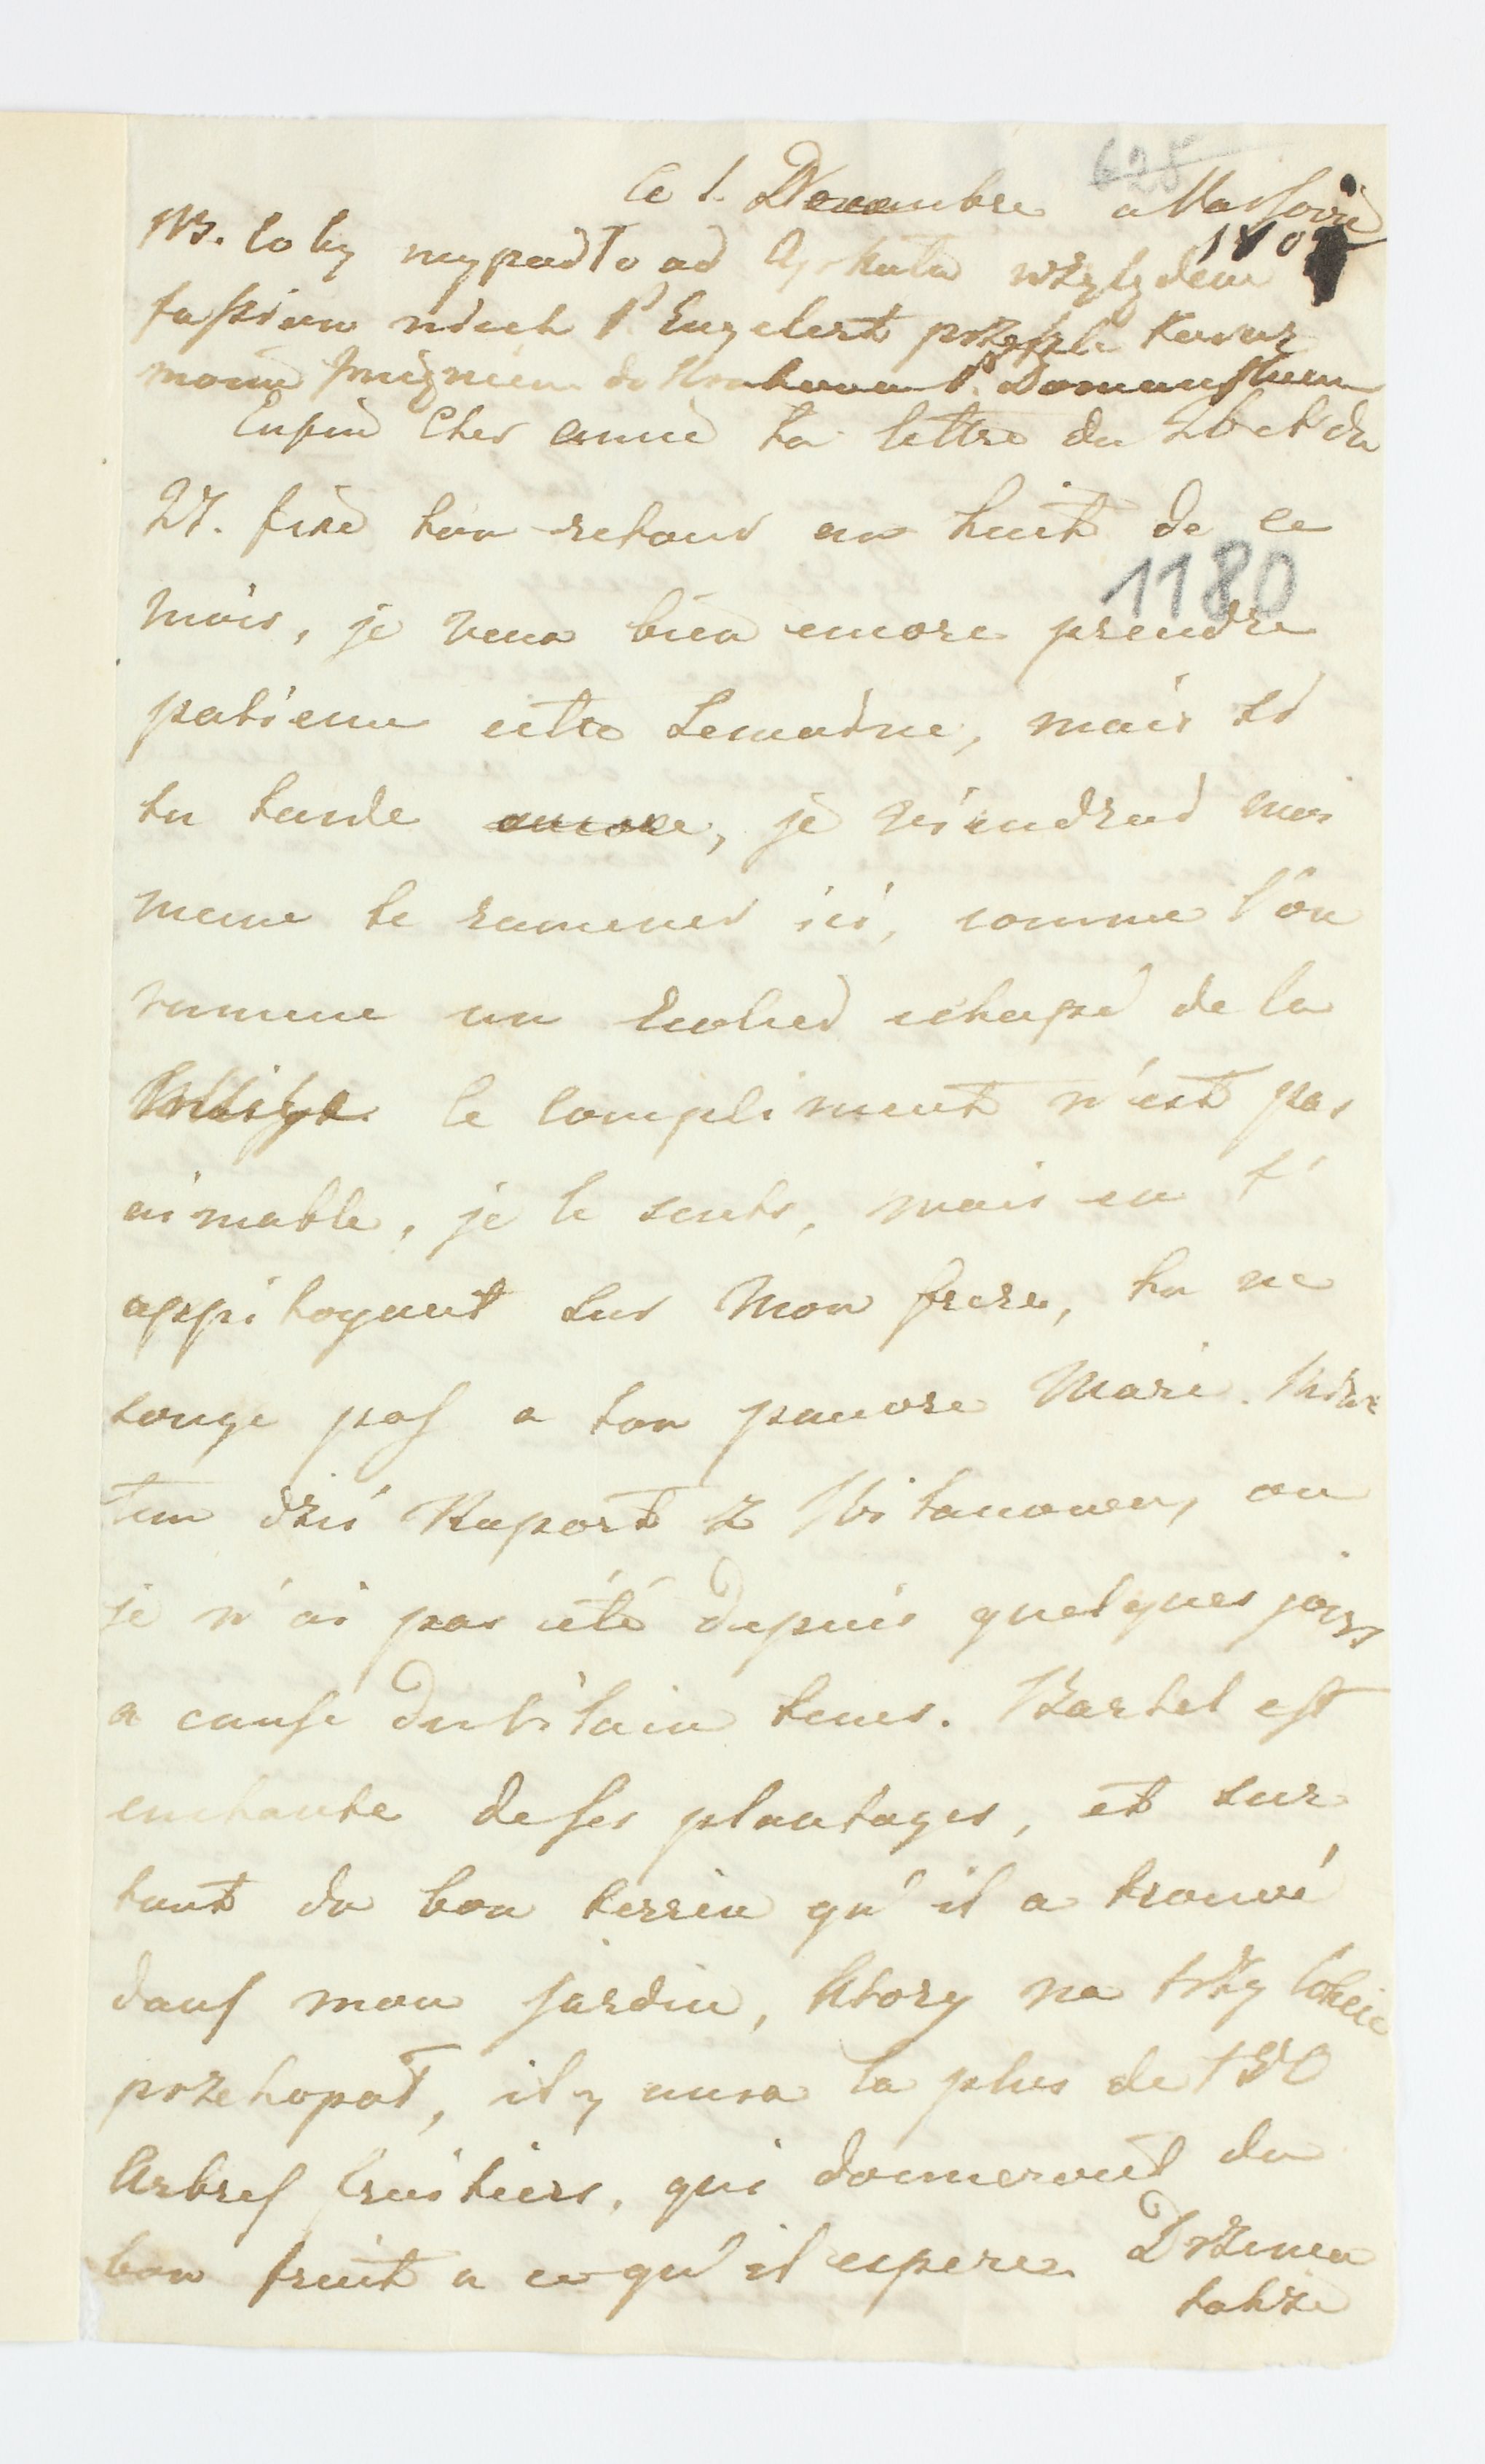 625
Ce 1. Decembre a Varsovie
180
NB. Coby wypadło od Cyrkuła względem
fassium niech P. Engelert przeszle
moim imieniem do Krakowa P. Domanskiem
Enfin Cher amie ta lettre du 26 et du
27. fixe ton retour au huit de ce
1180
mois, je veux bien encore prendre
patience cette Semaine, mais si
tu tarde encore, je viendrai moi
meme te ramener ici, comme l'on
ramene un Ecolier echapé de la
le compliment n'est pas
aimable, je le sents, mais en t'
appitoyent sur Mon frere, tu ne
songe pas a ton pauvre Mari.
dziś Raport z Wilanowa, ou
je n'ai pas été dupuis quelques jours
a cause du vilain tems. Bartel est
enchante de ses plantages, et sur
tout du bon terrin qu'il a trouvé
dans mon jardin, ktory na trzy łokcie
przekopał, il y aura la plus de 150
Arbres fruitiers, qui donneront du
bon fruit a ce qu'il espere. Drzewa
także